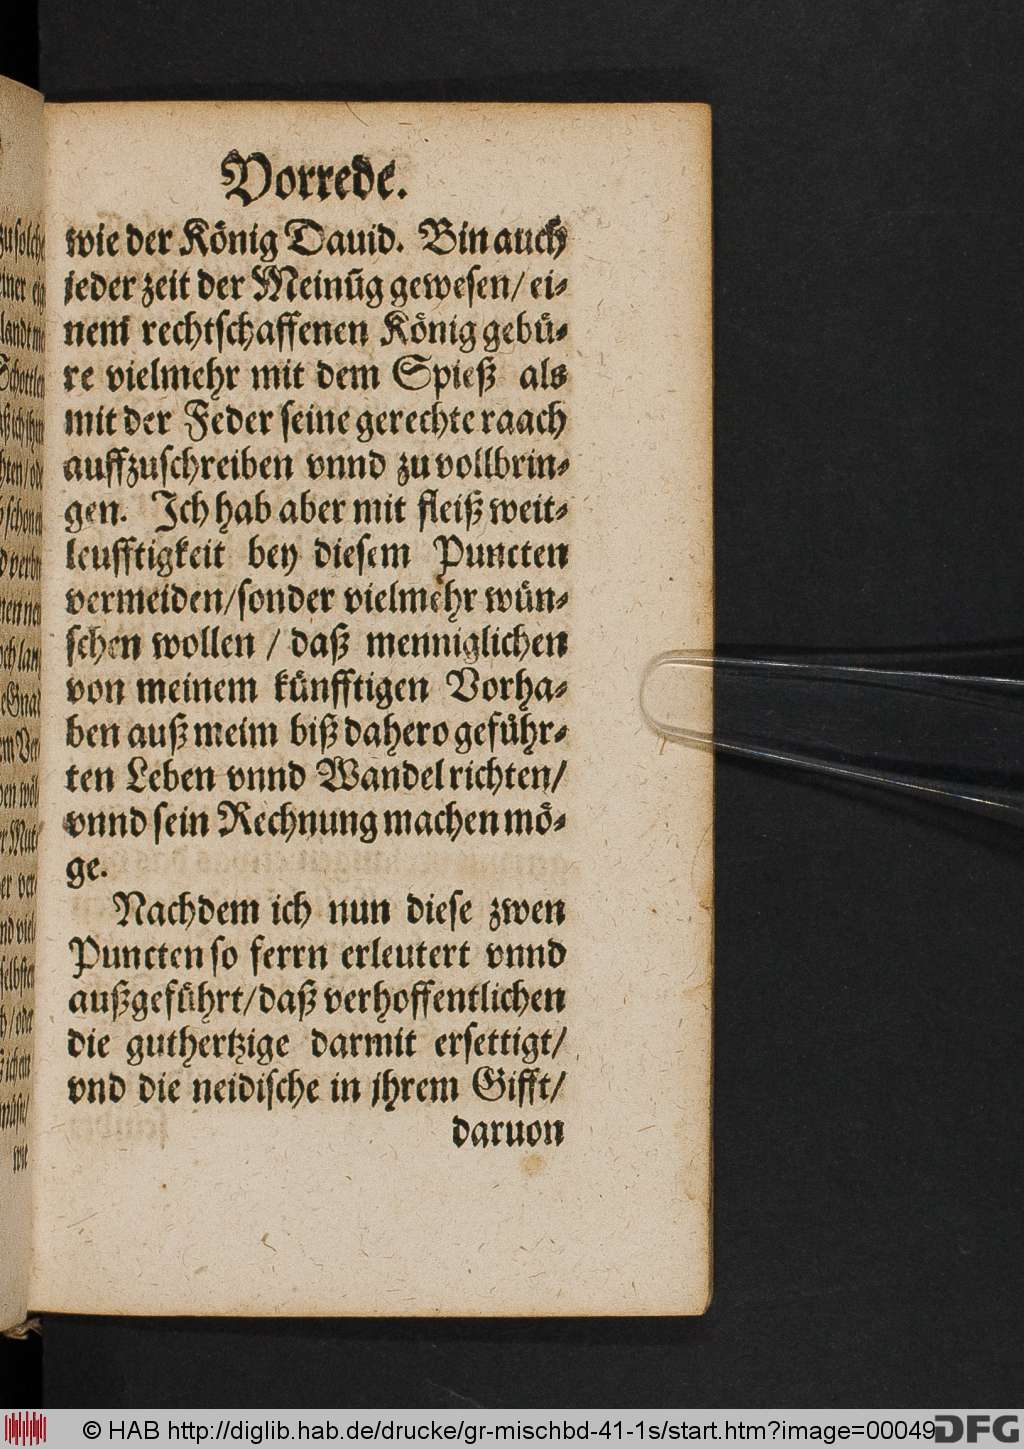 Vorrede.
wie der König Dauid. Bin auch
jeder zeit der Meinūg gewesen/ ei-
nem rechtschaffenen König gebü-
re vielmehr mit dem Spieß als
mit der Feder seine gerechte raach
auffzuschreiben vnnd zu vollbrin-
gen. Ich hab aber mit fleiß weit-
leufftigkeit bey diesem Puncten
vermeiden/sonder vielmehr wün-
schen wollen / daß menniglichen
von meinem künfftigen Vorha-
ben auß meim biß dahero geführ-
ten Leben vnnd Wandel richten/
vnnd sein Rechnung machen mö-
ge.
Nachdem ich nun diese zwen
Puncten so ferrn erleutert vnnd
außgeführt/daß verhoffentlichen
die guthertzige darmit ersettigt/
vnd die neidische in jhrem Gifft/
daruon
© HAB http://diglib.hab.de/drucke/gr-mischbd-41-1s/start.htm?image=00049
DFG